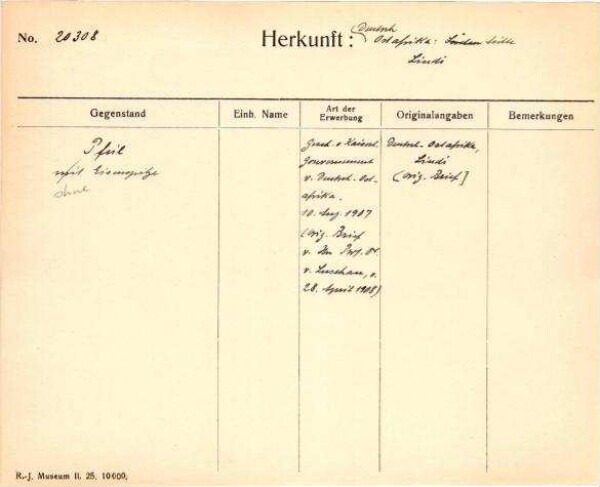 No. 20308
Herkunft: Deutsch
Ostafrika:
Lindi
Gegenstand
Einh. Name
Art der
Erwerbung
Originalangaben
Bemerkungen
Pfeil
mit Eisenspitze
ohne
Gesch. v. Kaiserl.
Gouvernement
v. Deutsch-Ost-
afrika.
10. Aug. 1907
(orig. Brief
v. Hn Prof. Dr.
v. Luschan, v.
28. April 1908)
Deutsch-Ostafrika,
Lindi
(orig. Brief]
R.-J. Museum II. 25. 10000.